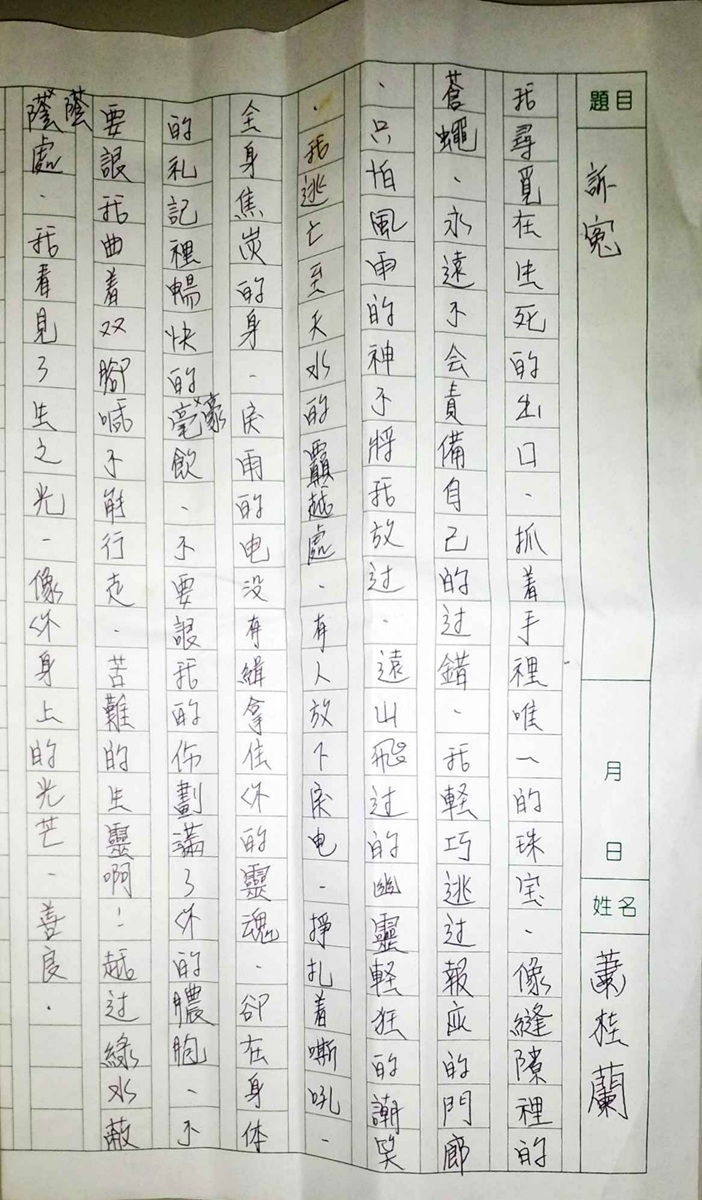 題目 訴冤 月 日 姓名 蕭桂蘭
我尋覓在生死的出口、抓着手裡唯一的珠宝、像縫隙裡的
蒼蠅、永遠不会責備自己的过錯、我軽巧逃过報应的門廊
、只怕風雨的神不將我放过、遠山飛过的幽靈軽狂的謿笑
、我逃亡至天水的顟越處、有人放下戾电、掙扎着嘶吼、
全身焦炭的身、戾雨的电没有緝拿住你的靈魂、卻在身体
的札記裡暢快的豪飲、不要誏我的佈劃满了你的膿胞、不
要誏我曲着双腳喊不能行走、苦難的生靈啊！越过綠水蔽
蔭處、我看見了生之光、像你身上的光芒、善良、